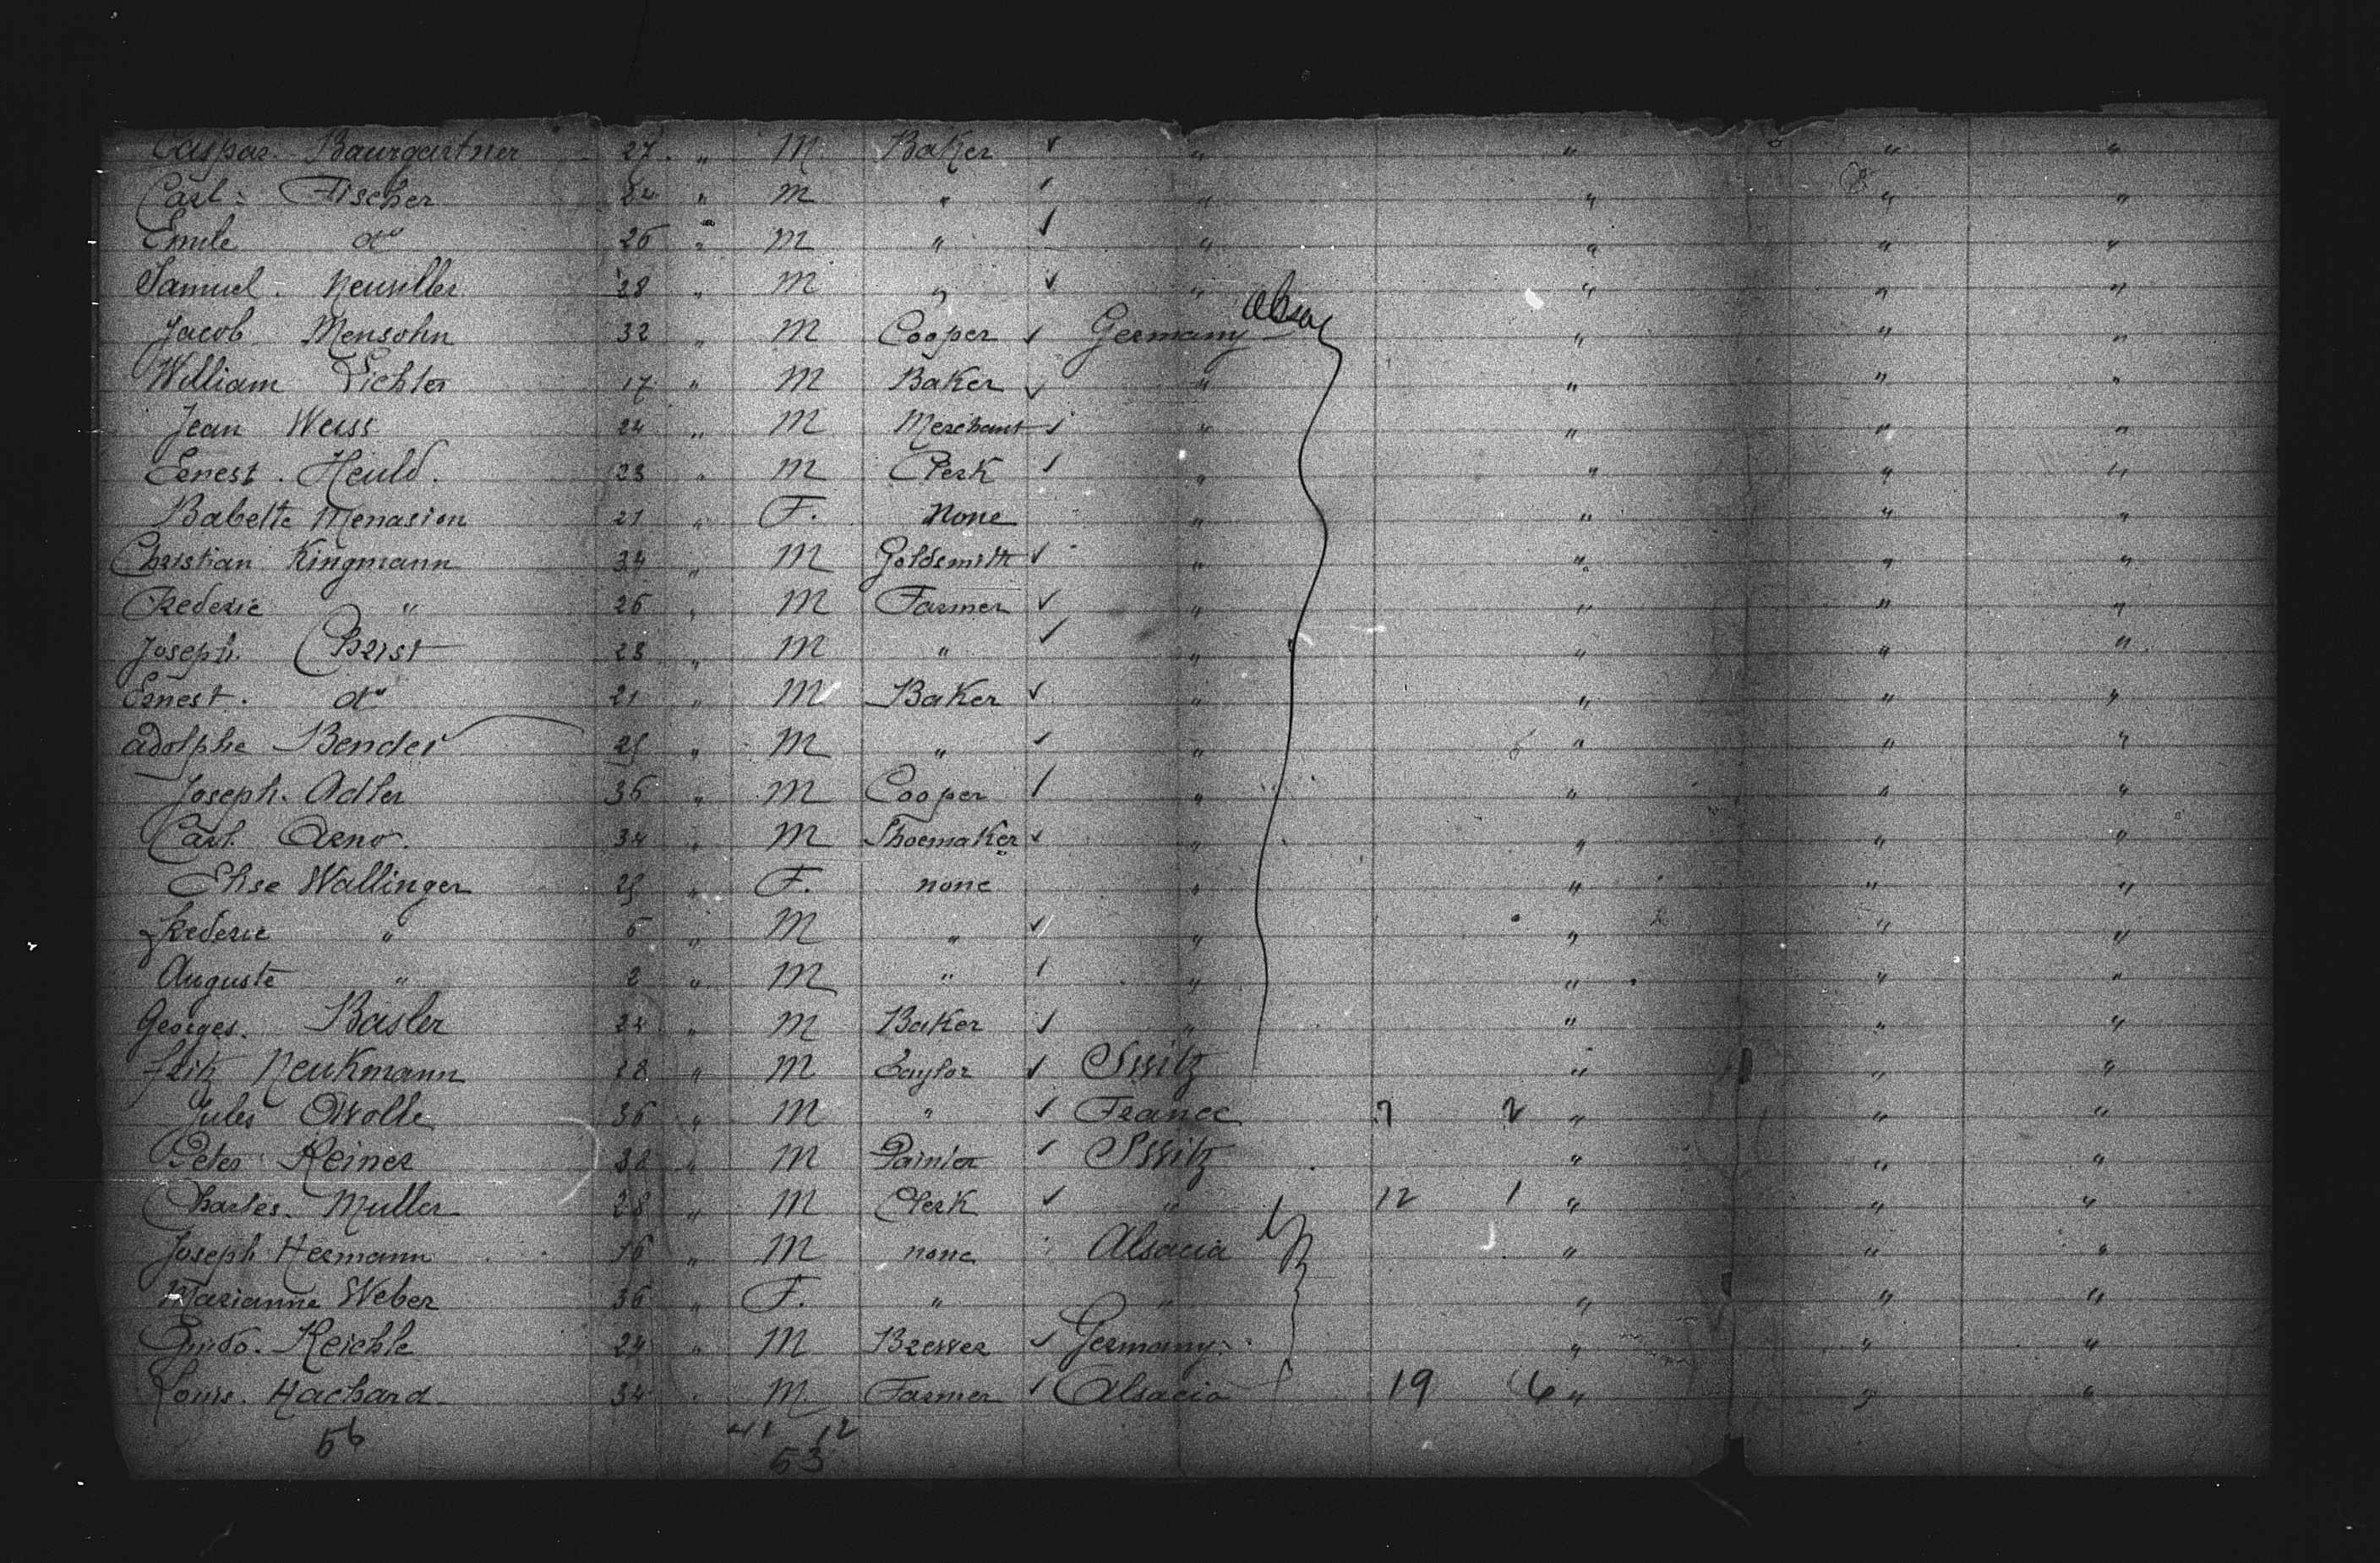 Caspar. Baurgartner 27 " M Baker ✓ " " " "
Carl. Fischer 24 " M " ✓ " " " "
Emile do 26 " M " ✓ " " " "
Samuel. Neuviller 28 " M " ✓ " " " "
Jacob Mensohn 32 " M Cooper ✓ Germany " " "
William Lichter 17 " M Baker ✓ " " " "
Jean Weiss 24 " M Merchant ✓ " " " "
Ernest. Heuld. 23 " M Clerk ✓ " " " "
Babette Menasion 21 " F. None " " " "
Christian Kingmann 34 " M Goldsmith ✓ " " " "
Frederic " 26 " M Farmer ✓ " " " "
Joseph. Christ 28 " M " ✓ " " " "
Ernest. do 21 " M Baker ✓ " " " "
Adolphe Bender " M " ✓ " " " "
Joseph. Adler 36 " M Cooper ✓ " " " "
Carl. Arno. 34 " M Shoemaker ✓ " " " "
Elise Wallinger " F. none " " " "
Frederic " 6 " M " ✓ " " " "
Auguste " 2 " M " ✓ " " " "
Georges. Basler 24 " M Baker ✓ " " " "
Fritz Neukmann " M Taylor ✓ Switz " " "
Jules 36 " M " ✓ France 7 2 " " "
Peter Reiner 38 " M Painter ✓ Switz " " "
Charles. Muller 28 " M Clerk ✓ " 12 1 " " "
Joseph Hermann 16 " M none Alsacia " " "
Marianne Weber 36 " F. " " " " "
Guido. Reichle 24 " M Brewer ✓ Germany. " " "
Louis. Hachard 34 " M. Farmer ✓ Alsacia 19 6 " " "
56 41 12
53